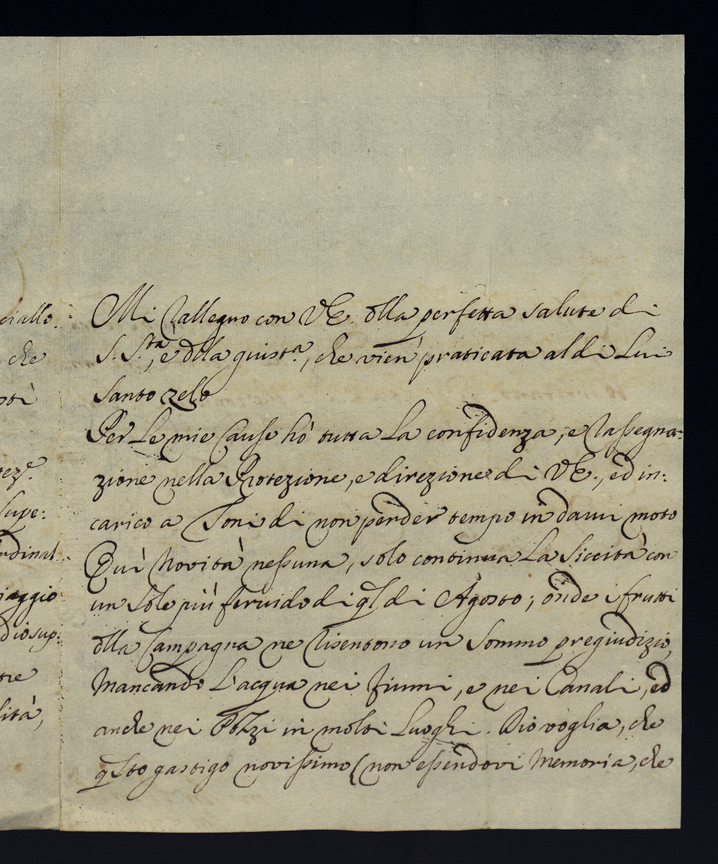 ciallo.
che
otì
rez.e
supe:
rdinal
iaggio
dio sup:
ore
lità,
Mi rallegro con V.E. dlla perfetta salute di
S. S.tà, e dlla quist.a, che vien praticata al di Lui
santo zelo
Per Le mie Cause hò tutta La confidenza, e rassegna=
zione nella Protezione, e direzione di V.E., ed in:
carico a Toni di non perder tempo in darvi moto
Quì Novità nessuna, solo continua La Siccità con
un Sole più fervido di ql di Agosto; onde i frutti
dlla Campagna ne risentono un Sommo pregiudizio,
Mancando L'acqua nei fiumi, e nei Canali, ed
anche nei Pozzi in molti Luoghi. Dio voglia, che
qsto gastigo novissimo (non essendovi Memoria, che